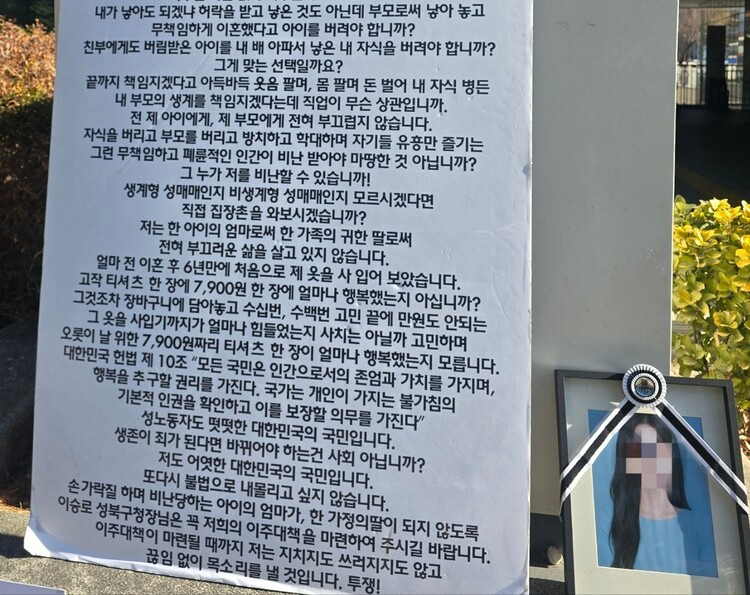 내가 낳아도 되겠냐 허락을 받고 낳은 것도 아닌데 부모로써 낳아 놓고
무책임하게 이혼했다고 아이를 버려야 합니까?
친부에게도 버림받은 아이를 내 배 아파서 낳은 내 자식을 버려야 합니까?
그게 맞는 선택일까요?
끝까지 책임지겠다고 아득바득 웃음 팔며, 몸 팔며 돈 벌어 내 자식 병든
내 부모의 생계를 책임지겠다는데 직업이 무슨 상관입니까.
전 제 아이에게, 제 부모에게 전혀 부끄럽지 않습니다.
자식을 버리고 부모를 버리고 방치하고 학대하며 자기들 유흥만 즐기는
그런 무책임하고 폐륜적인 인간이 비난 받아야 마땅한 것 아닙니까?
그 누가 저를 비난할 수 있습니까!
생계형 성매매인지 비생계형 성매매인지 모르시겠다면
직접 집장촌을 와보시겠습니까?
저는 한 아이의 엄마로써 한 가족의 귀한 딸로써
전혀 부끄러운 삶을 살고 있지 않습니다.
얼마 전 이혼 후 6년만에 처음으로 제 옷을 사 입어 보았습니다.
고작 티셔츠 한 장에 7,900원 한 장에 얼마나 행복했는지 아십니까?
그것조차 장바구니에 담아놓고 수십번, 수백번 고민 끝에 만원도 안되는
그 옷을 사입기까지가 얼마나 힘들었는지 사치는 아닐까 고민하며
오롯이 날 위한 7,900원짜리 티셔츠 한 장이 얼마나 행복했는지 모릅니다.
대한민국 헌법 제 10조 “모든 국민은 인간으로서의 존엄과 가치를 가지며,
행복을 추구할 권리를 가진다. 국가는 개인이 가지는 불가침의
기본적 인권을 확인하고 이를 보장할 의무를 가진다”
성노동자도 떳떳한 대한민국의 국민입니다.
생존이 죄가 된다면 바뀌어야 하는건 사회 아닙니까?
저도 어엿한 대한민국의 국민입니다.
또다시 불법으로 내몰리고 싶지 않습니다.
손 가락질 하며 비난당하는 아이의 엄마가, 한 가정의딸이 되지 않도록
이승로 성북구청장님은 꼭 저희의 이주대책을 마련하여 주시길 바랍니다.
이주대책이 마련될 때까지 저는 지치지도 쓰러지지도 않고
끊임 없이 목소리를 낼 것입니다. 투쟁!